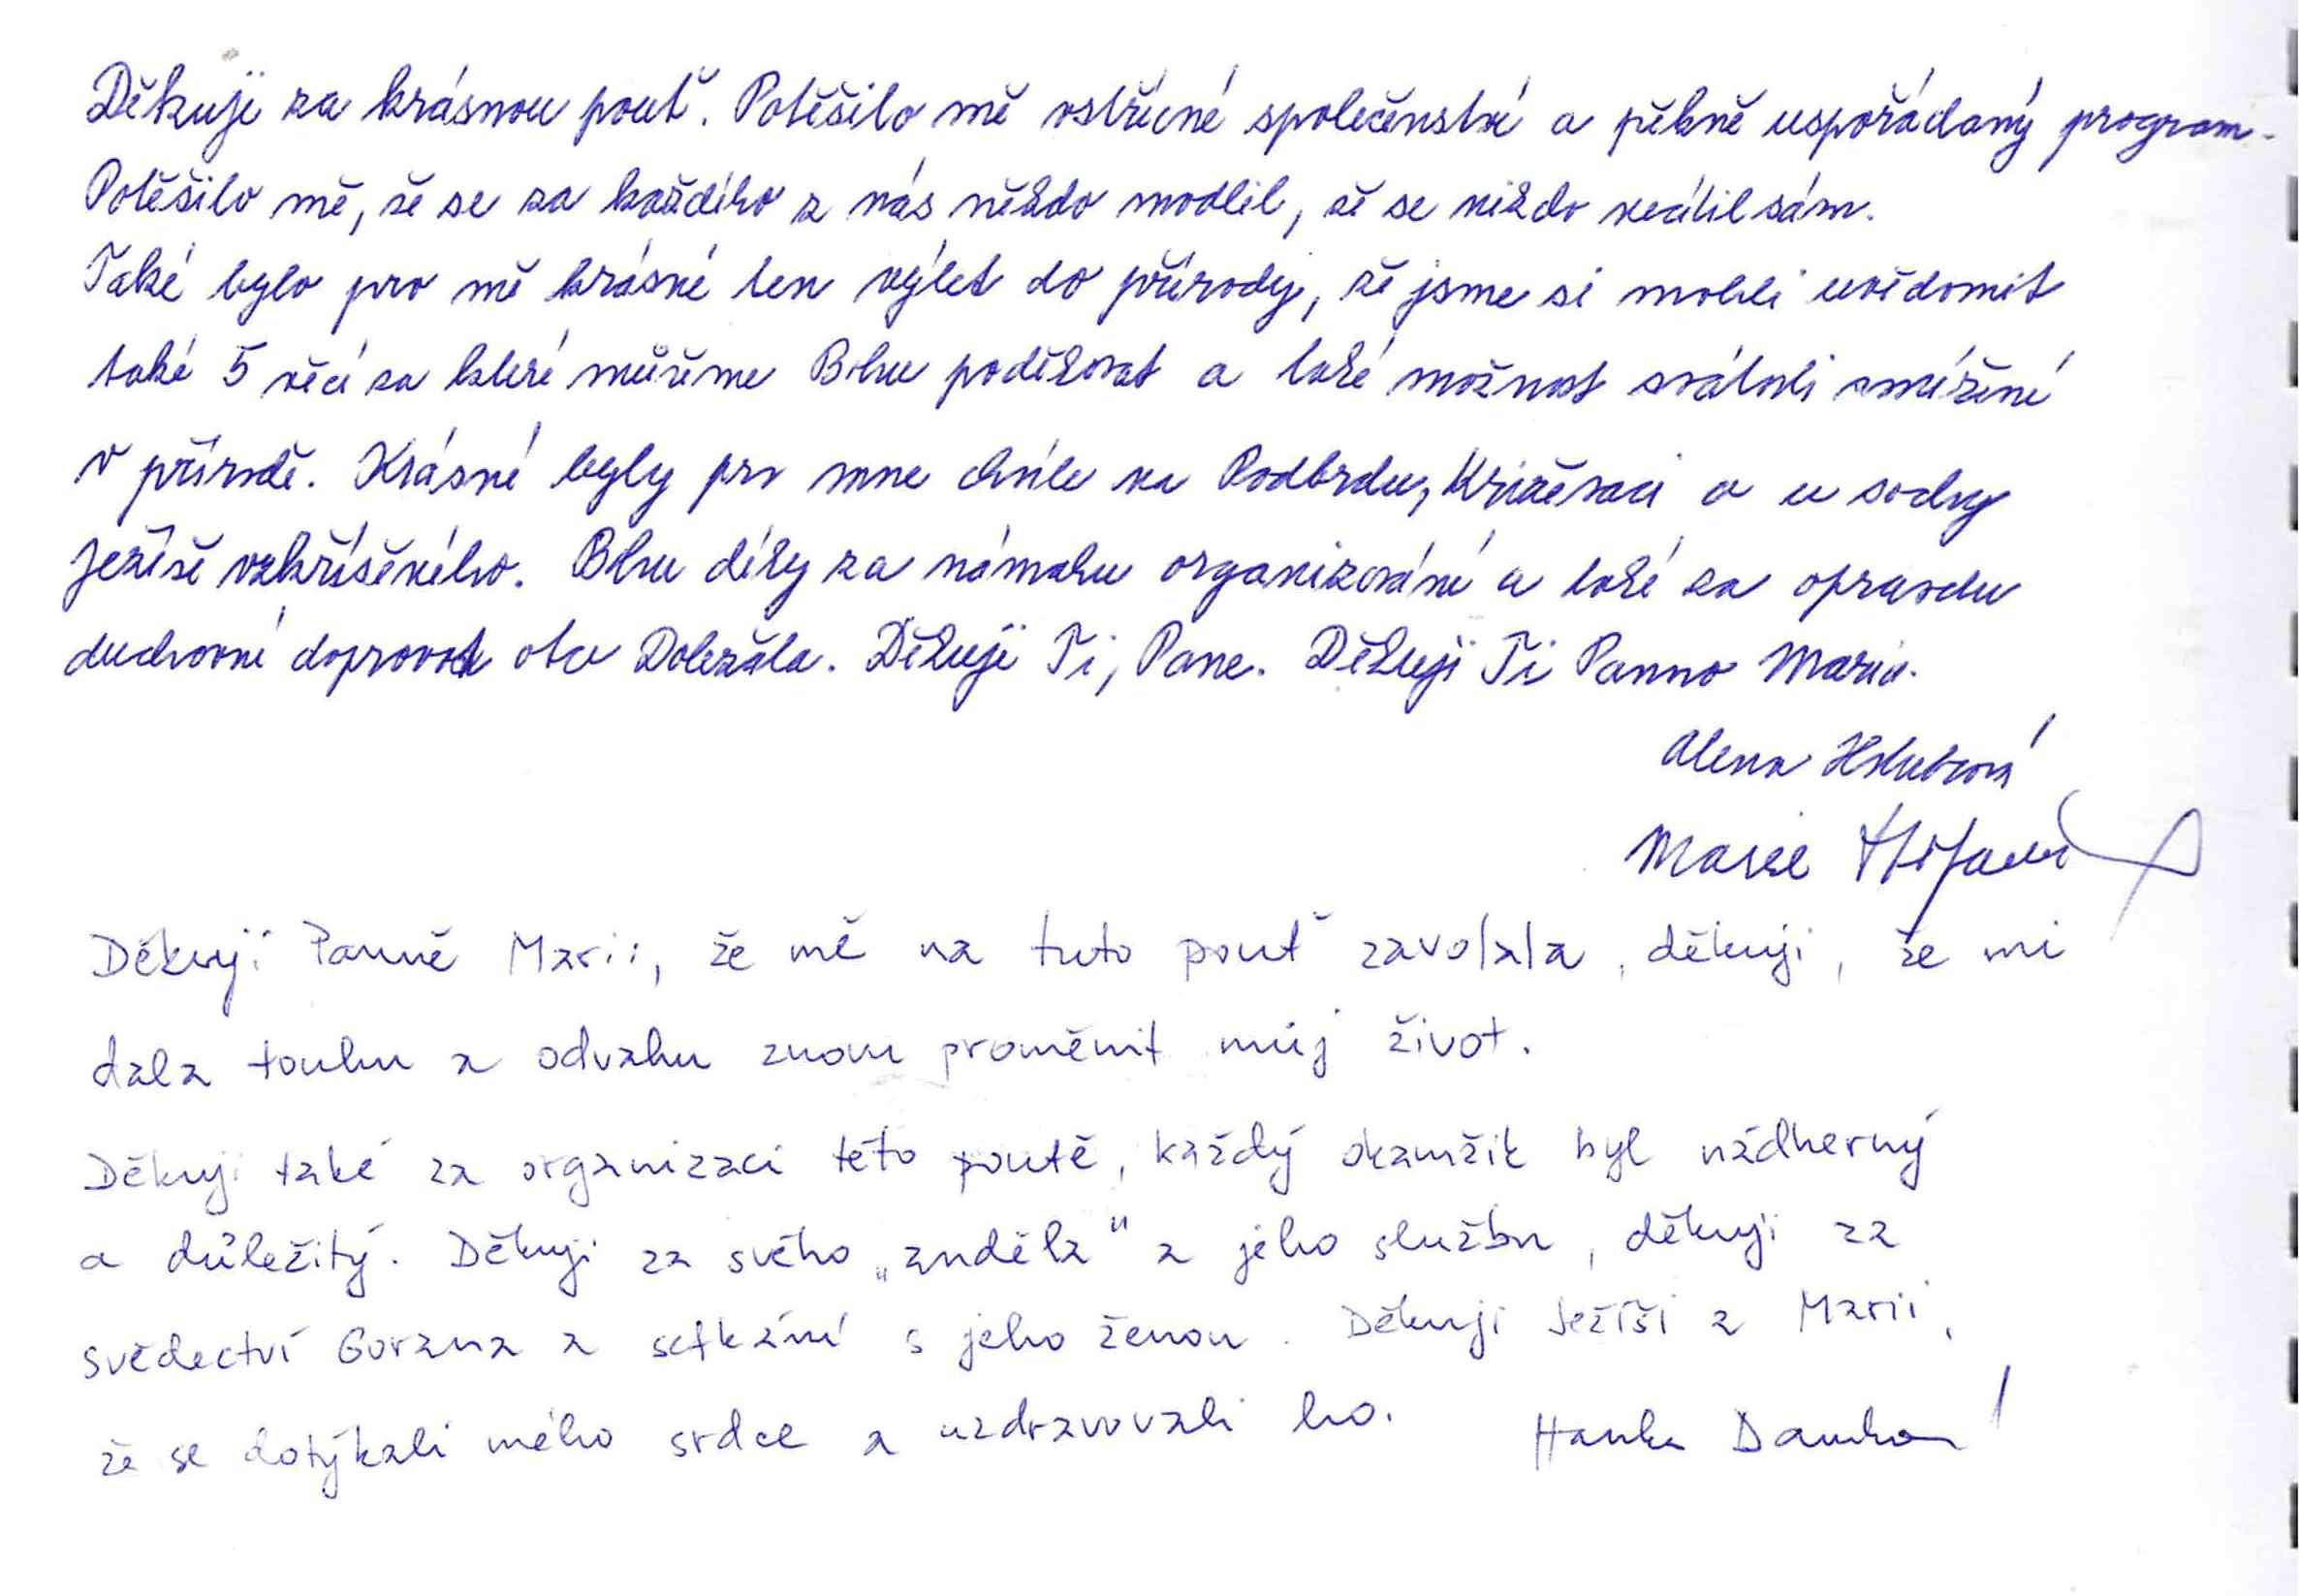 Děkuji za krásnou pouť. Potěšilo mě vstřícné společenství a pěkně uspořádaný program.
Potěšilo mě, že se za každého z nás někdo modlil, že se nikdo necítil sám.
Také bylo pro mě krásné ten výlet do přírody, že jsme si mohli uvědomit
také 5 věcí za které můžeme Bohu poděkovat a také možnost svátosti smíření
v přírodě. Krásné byly pro mne chvíle na Podbrdu, Križevaci a u sochy
Ježíše vzkříšeného. Bohu díky za námahu organizování a také za opravdu
duchovní doprovod otce Doležala. Děkuji Ti, Pane. Děkuji Ti Panno Maria.
Alena
Marie
Děkuji Panně Marii, že mě na tuto pouť zavolala, děkuji, že mi
dala touhu a odvahu znovu proměnit můj život.
Děkuji také za organizaci této poutě, každý okamžik byl nádherný
a důležitý. Děkuji za svého „anděla" a jeho službu, děkuji za
svědectví Gorana a setkání s jeho ženou. Děkuji Ježíši a Marii,
že se dotýkali mého srdce a uzdravovali ho.
Hanka